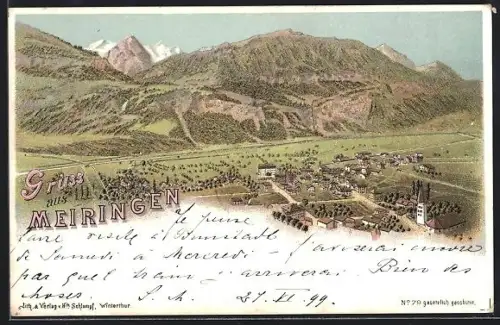 Gruss
aus
MEIRINGEN
Je pense
faire visite à
de Samedi à Mercredi - J'aviserai encore
par quel train arriverai Bien des
choses. 27 VI. 99.
Lith. & Verlag v. Hch Schlumpf, Winterthur
No 70 gesetzlich geschützt.